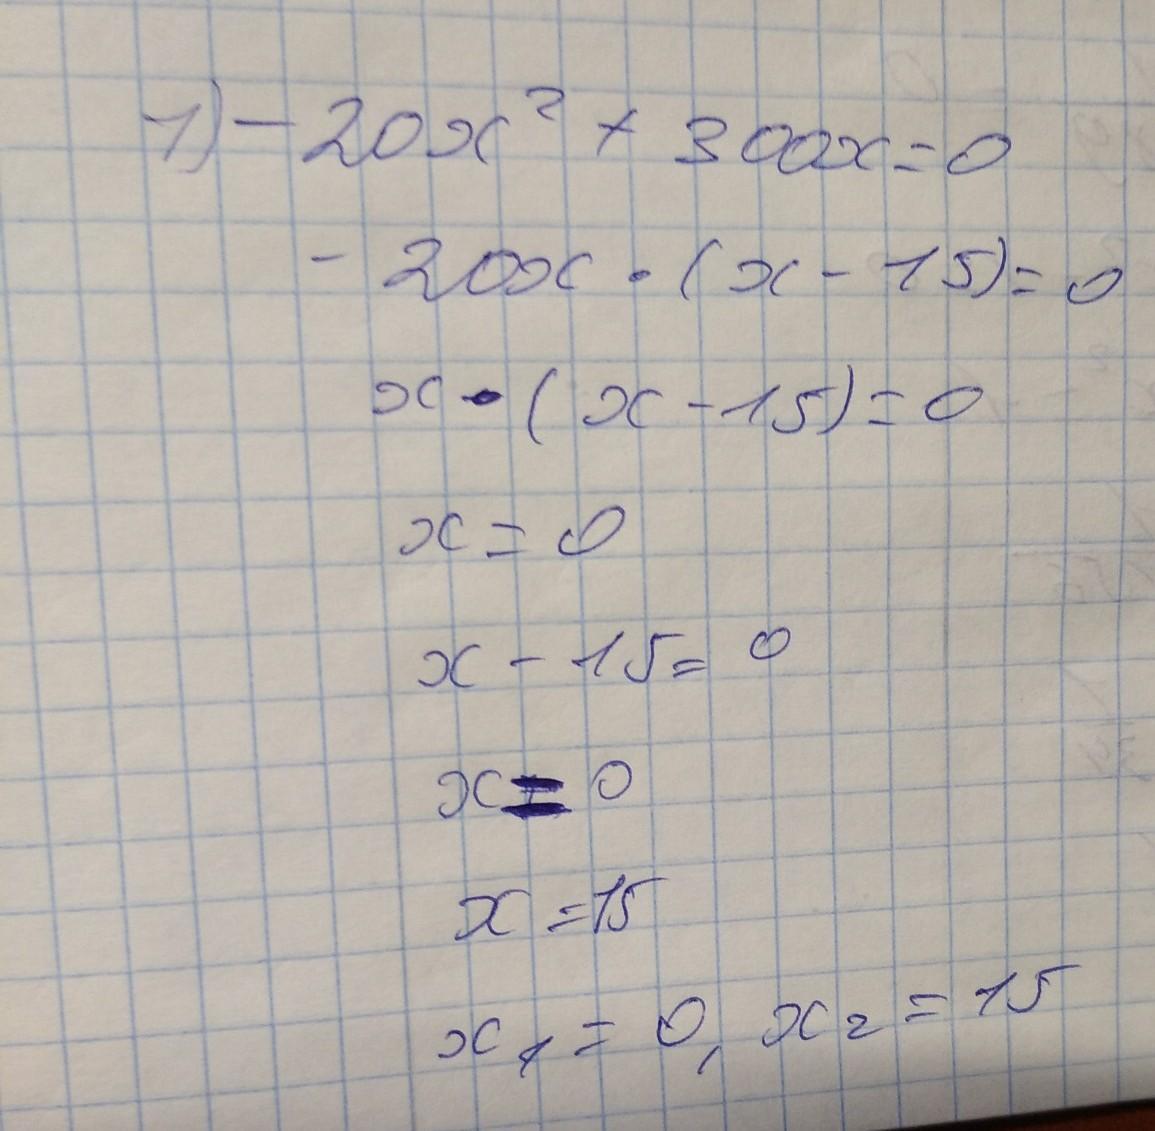 1) - 20x² + 300x = 0
- 20x · (x - 15) = 0
x · (x - 15) = 0
x = 0
x - 15 = 0
x = 0
x = 15
x₁ = 0, x₂ = 15